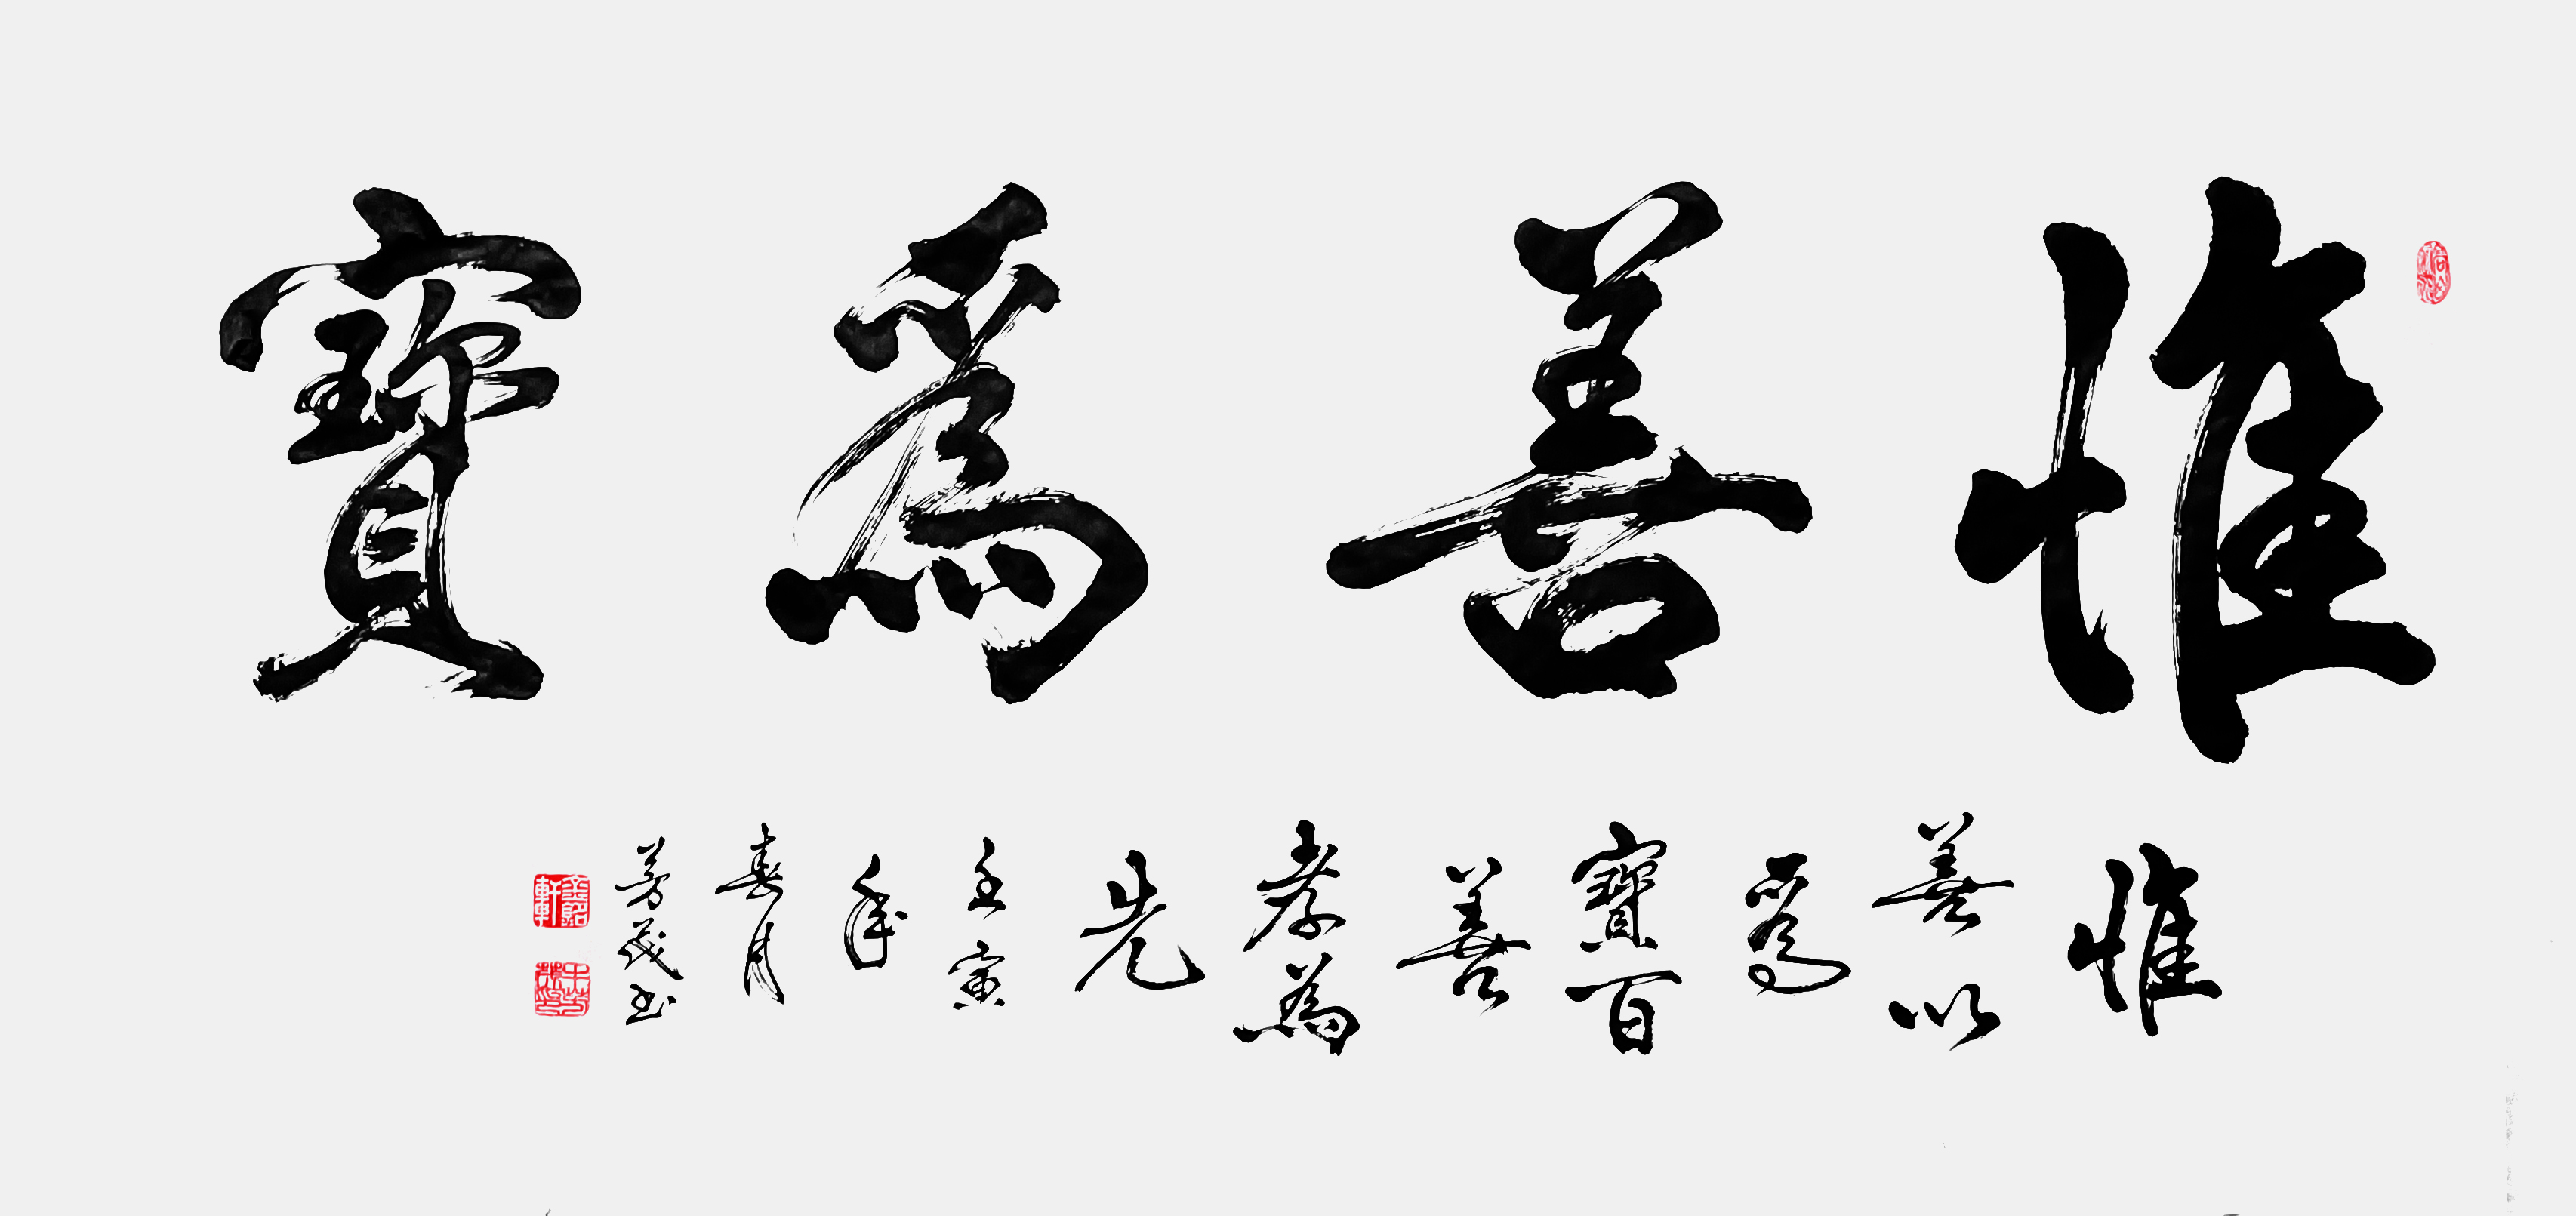 惟善爲寶
惟善以爲寶百善孝為先壬寅年春月芳茂书